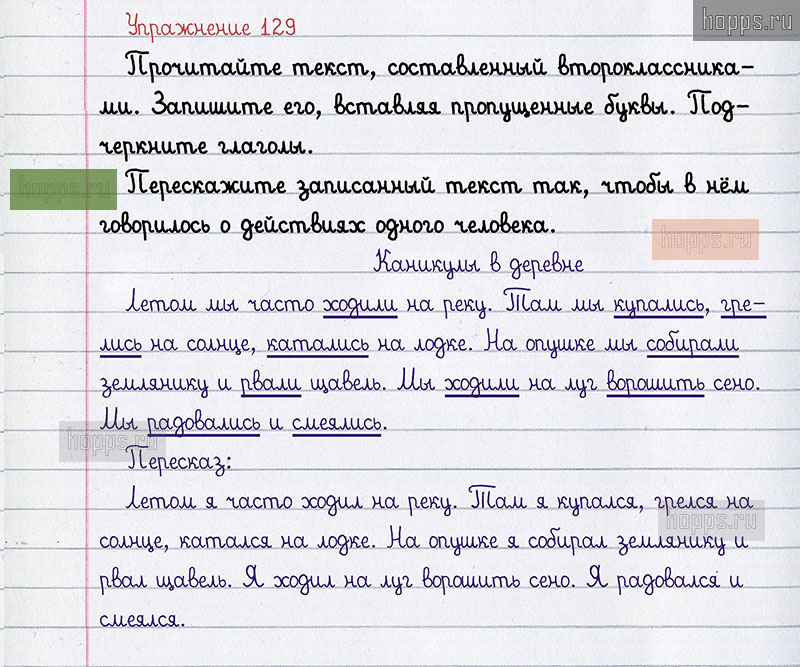 hopps.ru
Упражнение 129
Прочитайте текст, составленный второклассника-
ми. Запишите его, вставляя пропущенные буквы. Под-
черкните глаголы.
hopps.ru
Перескажите записанный текст так, чтобы в нём
говорилось о действиях одного человека.
hopps.ru
Каникулы в деревне
Летом мы часто ходили на реку. Там мы купались, гре-
лись на солнце, катались на лодке. На опушке мы собирали
землянику и рвали щавель. Мы ходили на луг ворошить сено.
Мы радовались и смеялись.
hopps.ru
Пересказ:
Летом я часто ходил на реку. Там я купался, грелся на
hopps.ru
солнце, катался на лодке. На опушке я собирал землянику и
рвал щавель. Я ходил на луг ворошить сено. Я радовался и
смеялся.